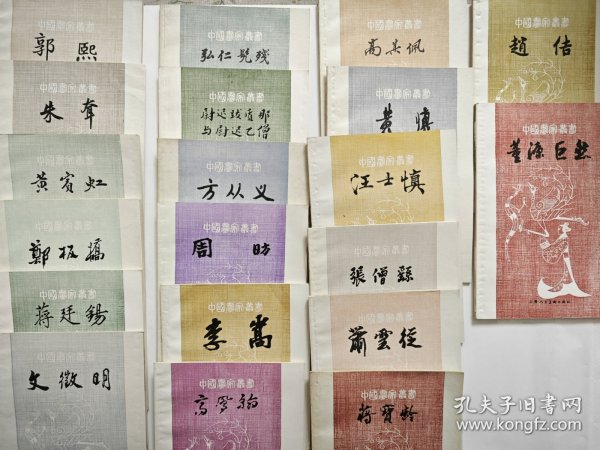 中國畫家叢書
郭熙
朱耷
中國畫家叢書
黄賓虹
中國畫家叢書
鄭板橋
中國畫家叢書
蒋廷錫
中國畫家叢書
文徵明
中國畫家叢書
弘仁髡残
中國畫家叢書
尉迟跋质那
与尉迟乙僧
中國畫家叢書
方从义
中國畫家叢書
周昉
中國畫家叢書
李嵩
中國畫家叢書
高鳳翰
中國畫家叢書
高其佩
中國畫家叢書
黄慎
中國畫家叢書
汪士慎
中國畫家叢書
張僧繇
中國畫家叢書
蕭雲從
中國畫家叢書
蒋寶齡
中國畫家叢書
趙佶
中國畫家叢書
董源巨然
上海人民美術出版社
孔夫子旧书网
www.kongfz.com